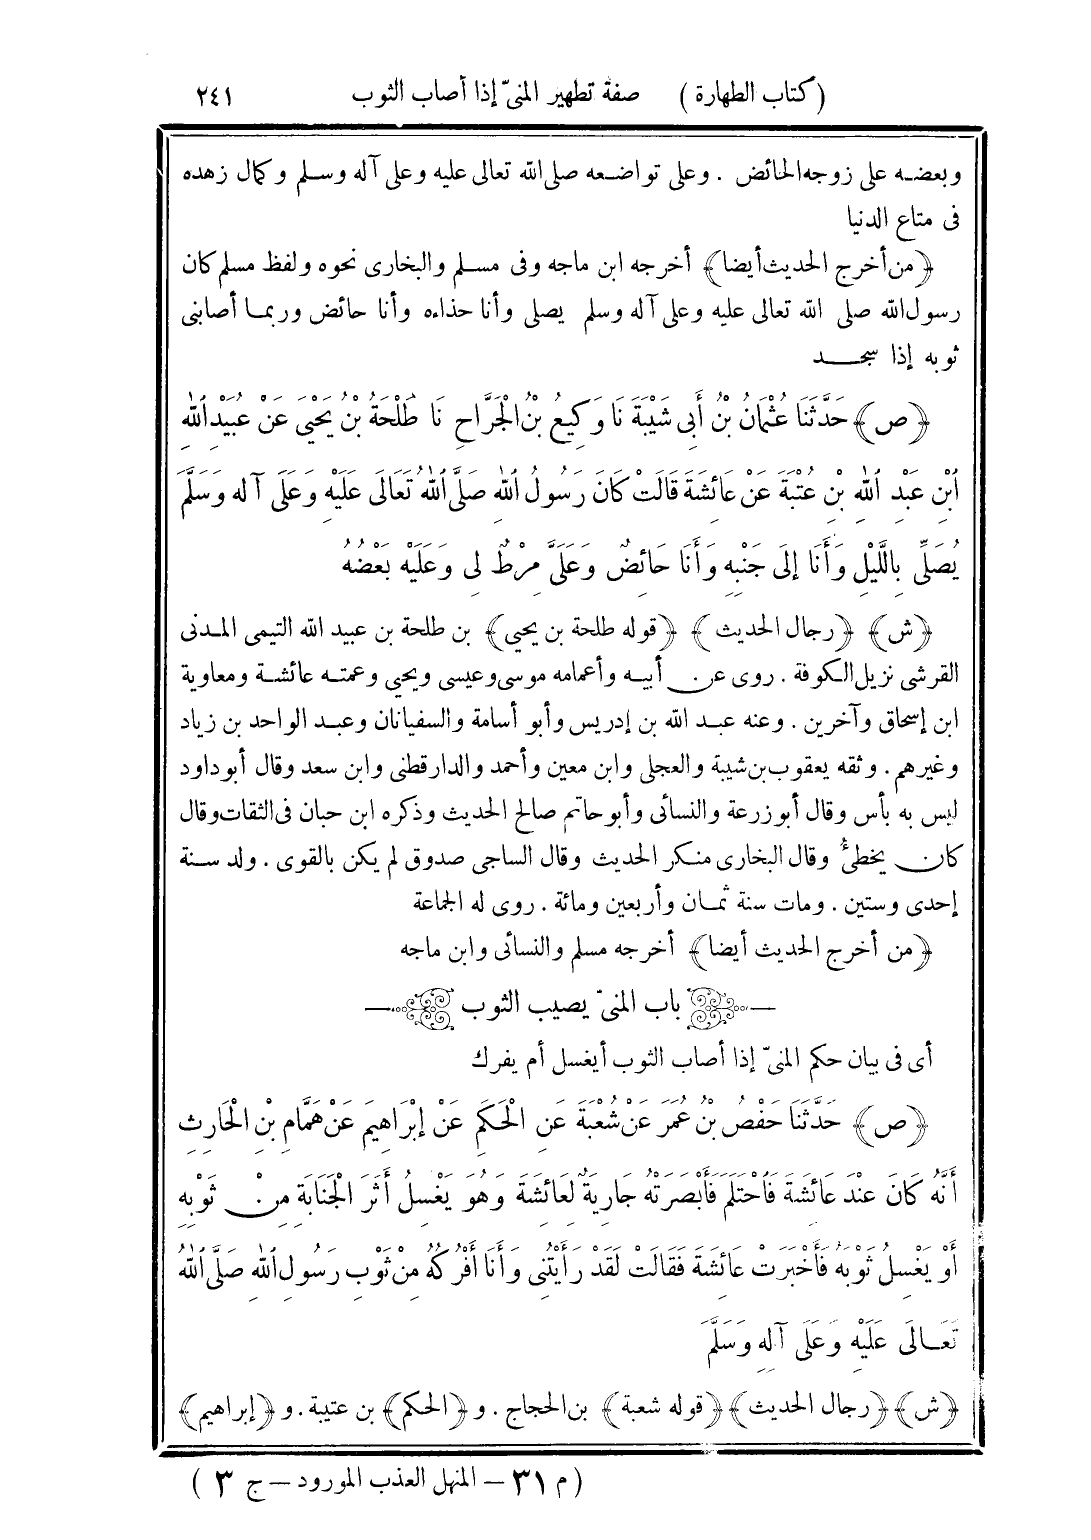 (كتاب الطهارة) صفة تطهير المنىّ إذا أصاب الثوب ٢٤١
وبعضه على زوجه الحائض . وعلى تواضعه صلى الله تعالى عليه وعلى آله وسلم وكمال زهده
فى متاع الدنيا
﴿من أخرج الحديث أيضا﴾ أخرجه ابن ماجه وفى مسلم والبخارى نحوه ولفظ مسلم كان
رسول الله صلى الله تعالى عليه وعلى آله وسلم يصلى وأنا حذاءه وأنا حائض وربما أصابنى
ثوبه إذا سجد
﴿ص﴾ حَدَّثَنَا عُثْمَانُ بْنُ أَبِى شَيْبَةَ نَا وَكِيعُ بْنُ الْجَرَّاحِ نَا طَلْحَةُ بْنُ يَحْيَى عَنْ عُبَيْدِ اللهِ
ابْنِ عَبْدِ اللهِ بْنِ عُتْبَةَ عَنْ عَائِشَةَ قَالَتْ كَانَ رَسُولُ اللهِ صَلَّى اللهُ تَعَالَى عَلَيْهِ وَعَلَى آلِهِ وَسَلَّمَ
يُصَلِّى بِاللَّيْلِ وَأَنَا إِلَى جَنْبِهِ وَأَنَا حَائِضٌ وَعَلَىَّ مِرْطٌ لِى وَعَلَيْهِ بَعْضُهُ
﴿ش﴾ ﴿رجال الحديث﴾ ﴿قوله طلحة بن يحيى﴾ بن طلحة بن عبيد الله التيمى المدنى
القرشى نزيل الكوفة . روى عن أبيه وأعمامه موسى وعيسى ويحيى وعمته عائشة ومعاوية
ابن إسحاق وآخرين . وعنه عبد الله بن إدريس وأبو أسامة والسفيانان وعبد الواحد بن زياد
وغيرهم . وثقه يعقوب بن شيبة والعجلى وابن معين وأحمد والدارقطنى وابن سعد وقال أبو داود
ليس به بأس وقال أبو زرعة والنسائى وأبو حاتم صالح الحديث وذكره ابن حبان فى الثقات وقال
كان يخطئُ وقال البخارى منكر الحديث وقال الساجى صدوق لم يكن بالقوى . ولد سنة
إحدى وستين . ومات سنة ثمان وأربعين ومائة . روى له الجماعة
﴿من أخرج الحديث أيضا﴾ أخرجه مسلم والنسائى وابن ماجه
باب المنىّ يصيب الثوب
أى فى بيان حكم المنىّ إذا أصاب الثوب أيغسل أم يفرك
﴿ص﴾ حَدَّثَنَا حَفْصُ بْنُ عُمَرَ عَنْ شُعْبَةَ عَنِ الْحَكَمِ عَنْ إِبْرَاهِيمَ عَنْ هَمَّامِ بْنِ الْحَارِثِ
أَنَّهُ كَانَ عِنْدَ عَائِشَةَ فَاحْتَلَمَ فَأَبْصَرَتْهُ جَارِيَةٌ لِعَائِشَةَ وَهُوَ يَغْسِلُ أَثَرَ الْجَنَابَةِ مِنْ ثَوْبِهِ
أَوْ يَغْسِلُ ثَوْبَهُ فَأَخْبَرَتْ عَائِشَةَ فَقَالَتْ لَقَدْ رَأَيْتُنِى وَأَنَا أَفْرُكُهُ مِنْ ثَوْبِ رَسُولِ اللهِ صَلَّى اللهُ
تَعَالَى عَلَيْهِ وَعَلَى آلِهِ وَسَلَّمَ
﴿ش﴾ ﴿رجال الحديث﴾ ﴿قوله شعبة﴾ بن الحجاج . و﴿الحكم﴾ بن عتيبة . و﴿إبراهيم﴾
(م ٣١ – المنهل العذب المورود – ج ٣)